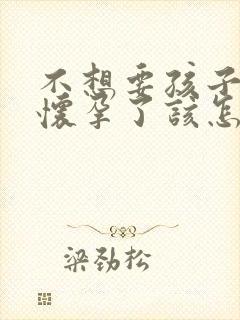 不想要孩子
怀孕了该怎
梁劲松